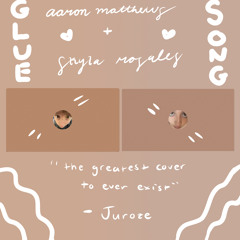 GLUE
SONG
aaron matthews
+
skyla rosales
"the greatest cover
to ever exist"
- Juroze